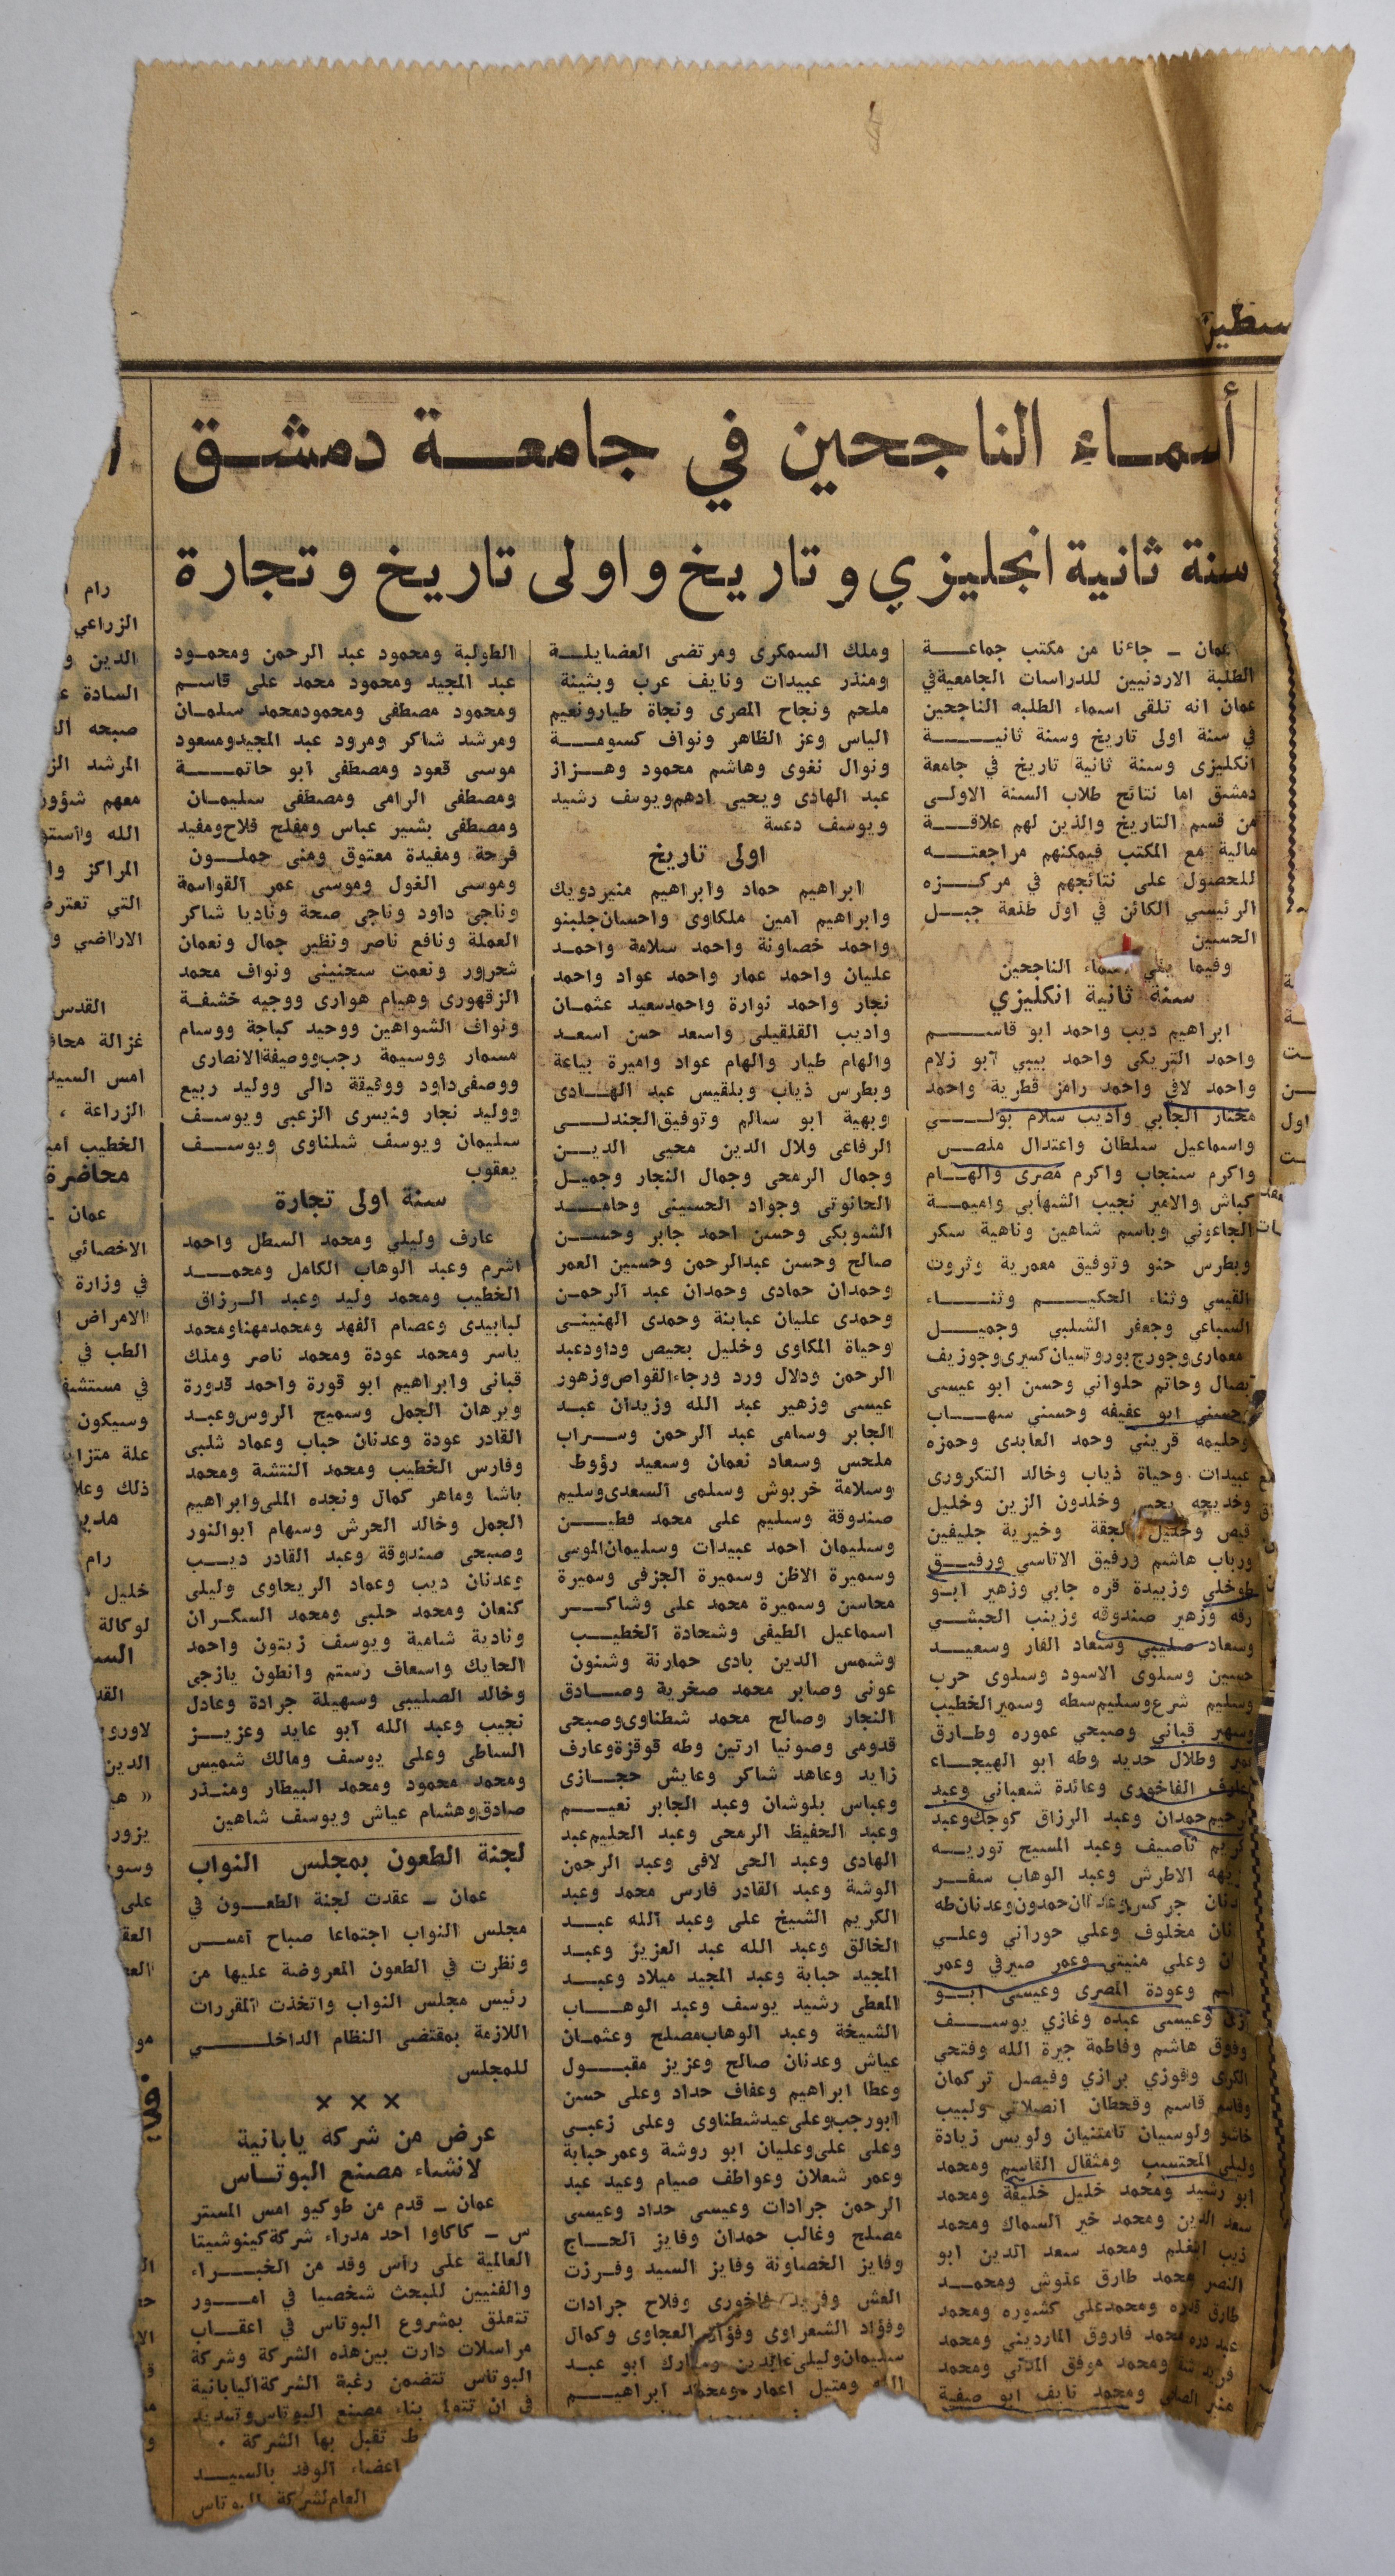 أسماء الناجحين في جامعة دمشق
سنة ثانية انجليزي وتاريخ واولى تاريخ وتجارة
عمان ـ جاءنا من مكتب جماعة
الطلبة الاردنيين للدراسات الجامعية في
عمان انه تلقى اسماء الطلبه الناجحين
في سنة اولى تاريخ وسنة ثانية
انكليزى وسنة ثانية تاريخ في جامعة
دمشق اما نتائج طلاب السنة الاولى
من قسم التاريخ والذين لهم علاقة
مالية مع المكتب فيمكنهم مراجعته
للحصول على نتائجهم في مركزه
الرئيسي الكائن في اول طلعة جبل
الحسين
وفيما يلي اسماء الناجحين
سنة ثانية انكليزي
ابراهيم ديب واحمد ابو قاسم
واحمد التريكى واحمد بيبي ابو زلام
واحمد لافي واحمد رامز قطرية واحمد
مختار الجابي واديب سلام بولي
واسماعيل سلطان واعتدال ملص
واكرم سنجاب واكرم مصرى والهام
كباش والامير نجيب الشهابي واميمة
الجاعوني وباسم شاهين وناهية سكر
وبطرس حنو وتوفيق معمرية وثروت
القيسي وثناء الحكيم وثناء
السباعي وجعفر الشلبي وجميل
معمارى وجورج بوروتسيان كسرى وجوزيف
بصال وحاتم حلواني وحسن ابو عيسى
وحسني ابو عفيفه وحسني سهاب
وحليمه قريني وحمد العابدى وحمزه
عبيدات وحياة ذياب وخالد التكرورى
وخديجه يحيى وخلدون الزين وخليل
قبص وخليل لحقة وخيرية جليفين
ورباب هاشم ورفيق الاتاسي ورفيق
طوخلي وزبيدة قره جابي وزهير ابو
رقه وزهير صندوقه وزينب الحبشي
وسعاد صليبي وسعاد الفار وسعيد
حسين وسلوى الاسود وسلوى حرب
وسليم شرع وسليم سطه وسمير الخطيب
وسهير قباني وصبحي عموره وطارق
نمر وطلال حديد وطه ابو الهيجاء
الفاخورى وعائدة شعباني وعبد
الرحيم حمدان وعبد الرزاق كوجك وعبد
الكريم ناصيف وعبد المسيح توريه
الاطرش وعبد الوهاب سفر
وعدنان جركس وعدنان حمدون وعدنان طه
مخلوف وعلي حوراني وعلي
وعلي منيني وعمر صيرفي وعمر
وعودة المصرى وعيسى ابو
وعيسى عبده وغازي يوسف
هاشم وفاطمة جيرة الله وفتحي
الكرى وفوزي برازي وفيصل تركمان
وقاسم قاسم وقحطان انصيلاتي ولبيب
خاشو ولوسيان تامتنيان ولويس زيادة
وليلى المحتسب ومثقال القاسم ومحمد
ابو رشيد ومحمد خليل خليفة ومحمد
سعد الدين ومحمد خير السماك ومحمد
ومحمد سعد الدين ابو
النصر محمد طارق علوش ومحمد
طارق قدره ومحمد علي كشوره ومحمد
محمد فاروق المارديني ومحمد
ومحمد موفق المدني ومحمد
ومحمد نايف ابو صفية
وملك السمكرى ومرتضى العضايلة
ومنذر عبيدات ونايف عرب وبثينة
ملحم ونجاح المصرى ونجاة طيار ونعيم
الياس وعز الظاهر ونواف كسومة
ونوال نغوى وهاشم محمود وهزاز
عبد الهادى ويحيى ادهم ويوسف رشيد
ويوسف دعسة
اولى تاريخ
ابراهيم حماد وابراهيم منير دويك
وابراهيم امين ملكاوى واحسان جلبنو
واحمد خصاونة واحمد سلامة واحمد
عليان واحمد عمار واحمد عواد واحمد
نجار واحمد نوارة واحمد سعيد عثمان
واديب القلقيلى واسعد حسن اسعد
والهام طيار والهام عواد واميرة بياعة
وبطرس ذياب وبلقيس عبد الهادى
وبهية ابو سالم وتوفيق الجندلى
الرفاعى ولال الدين محيى الدين
وجمال الرمحى وجمال النجار وجميل
الحانوتى وجواد الحسينى وحامد
الشوبكى وحسن احمد جابر وحسن
صالح وحسن عبدالرحمن وحسين العمر
وحمدان حمادى وحمدان عبد الرحمن
وحمدى عليان عبابنة وحمدى الهنينى
وحياة المكاوى وخليل بحيص وداود عبد
الرحمن ودلال ورد ورجاء القواص وزهور
عيسى وزهير عبد الله وزيدان عبد
الجابر وسامى عبد الرحمن وسراب
ملحس وسعاد نعمان وسعيد رؤوط
وسلامة خربوش وسلمى السعدى وسليم
صندوقة وسليم على محمد فطين
وسليمان احمد عبيدات وسليمان الموسى
وسميرة الاظن وسميرة الجزفى وسميرة
محاسن وسميرة محمد على وشاكر
اسماعيل الطيفى وشحادة الخطيب
وشمس الدين بادى حمارنة وشنون
عونى وصابر محمد صخرية وصادق
النجار وصالح محمد شطناوى وصبحى
قدومى وصونيا ارتين وطه قوقزة وعارف
زايد وعاهد شاكر وعايش حجازى
وعباس بلوشان وعبد الجابر نعيم
وعبد الحفيظ الرمحى وعبد الحليم عبد
الهادى وعبد الحى لافى وعبد الرحمن
الوشة وعبد القادر فارس محمد وعبد
الكريم الشيخ على وعبد الله عبد
الخالق وعبد الله عبد العزيز وعبد
المجيد حبابة وعبد المجيد ميلاد وعبد
المعطى رشيد يوسف وعبد الوهاب
الشيخة وعبد الوهاب مصلح وعثمان
عياش وعدنان صالح وعزيز مقبول
وعطا ابراهيم وعفاف حداد وعلى حسن
ابورجب وعلى عيد شطناوى وعلى زعبى
وعلى على وعليان ابو روشة وعمر حبابة
وعمر شعلان وعواطف صيام وعيد عبد
الرحمن جرادات وعيسى حداد وعيسى
مصلح وغالب حمدان وفايز الحاج
وفايز الخصاونة وفايز السيد وفرزت
العش وفريد فاخورى وفلاح جرادات
وفؤاد الشعراوى وفؤاد العجاوى وكمال
سليمان وليلى عابدين ومبارك ابو عبد
الله ومتيل اعمار ومحمد ابراهيم
الطولبة ومحمود عبد الرحمن ومحمود
عبد المجيد ومحمود محمد على قاسم
ومحمود مصطفى ومحمود محمد سلمان
ومرشد شاكر ومرود عبد المجيد ومسعود
موسى قعود ومصطفى ابو حاتمة
ومصطفى الرامى ومصطفى سليمان
ومصطفى بشير عباس ومفلح فلاح ومفيد
فرحة ومفيدة معتوق ومنى جملون
وموسى الغول وموسى عمر القواسمة
وناجى داود وناجى صحة وناديا شاكر
العملة ونافع ناصر ونظير جمال ونعمان
شحرور ونعمت سجنينى ونواف محمد
الزقهورى وهيام هوارى ووجيه خشفة
ونواف الشواهين ووحيد كباجة ووسام
مسمار ووسيمة رجب ووصيفة الانصارى
ووصفى داود ووفيقة دالى ووليد ربيع
ووليد نجار ويسرى الزعبى ويوسف
سليمان ويوسف شلناوى ويوسف
يعقوب
سنة اولى تجارة
عارف وليلي ومحمد السطل واحمد
اشرم وعبد الوهاب الكامل ومحمد
الخطيب ومحمد وليد وعبد الرزاق
لبابيدى وعصام الفهد ومحمد مهنا ومحمد
ياسر ومحمد عودة ومحمد ناصر وملك
قبانى وابراهيم ابو قورة واحمد قدورة
وبرهان الجمل وسميح الروس وعبد
القادر عودة وعدنان حباب وعماد شلبى
وفارس الخطيب ومحمد النتشة ومحمد
باشا وماهر كمال ونجده المللى وابراهيم
الجمل وخالد الحرش وسهام ابوالنور
وصبحى صندوقة وعبد القادر ديب
وعدنان ديب وعماد الريحاوى وليلى
كنعان ومحمد حلبى ومحمد السكران
ونادية شامية ويوسف زيتون واحمد
الحايك واسعاف رستم وانطون يازجى
وخالد الصليبى وسهيلة جرادة وعادل
نجيب وعبد الله ابو عايد وعزيز
الساطى وعلى يوسف ومالك شميس
ومحمد محمود ومحمد البيطار ومنذر
صادق وهشام عياش ويوسف شاهين
لجنة الطعون بمجلس النواب
عمان ـ عقدت لجنة الطعون في
مجلس النواب اجتماعا صباح امس
ونظرت في الطعون المعروضة عليها من
رئيس مجلس النواب واتخذت المقررات
اللازمة بمقتضى النظام الداخلي
للمجلس
× × ×
عرض من شركه يابانية
لانشاء مصنع البوتاس
عمان ـ قدم من طوكيو امس المستر
س ـ كاكاوا احد مدراء شركة كينوشيتا
العالمية على راس وفد من الخبراء
والفنيين للبحث شخصيا في امور
تتعلق بمشروع البوتاس في اعقاب
مراسلات دارت بين هذه الشركة وشركة
البوتاس تتضمن رغبة الشركة اليابانية
فى ان تتولى بناء مصنع البوتاس وتسديد
تقبل بها الشركة .
اعضاء الوفد بالسيد
العام لشركة البوتاس
رام
الزراعي
الدين و
السادة
صبحه
المرشد
معهم شؤون
الله
المراكز
التي
الاراضي
القدس
غزالة
امس السيد
الزراعة ،
الخطيب
محاضرة
عمان
الاخصائي
في وزارة
الامراض
الطب في
في
وسيكون
علة
ذلك
رام
خليل
لوكالة
الدين
يزور
على